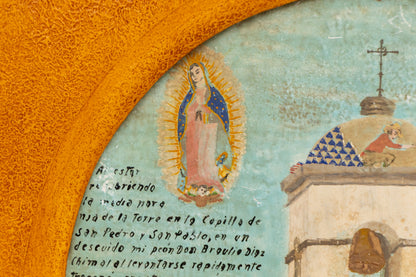 Al estar
re briendo
la media nara
nja de la Torre en la Capilla de
San Pedro y San Pablo, en un
descuido mi peón Dom Braulio Diaz
Chimal al levantarse rapidamente